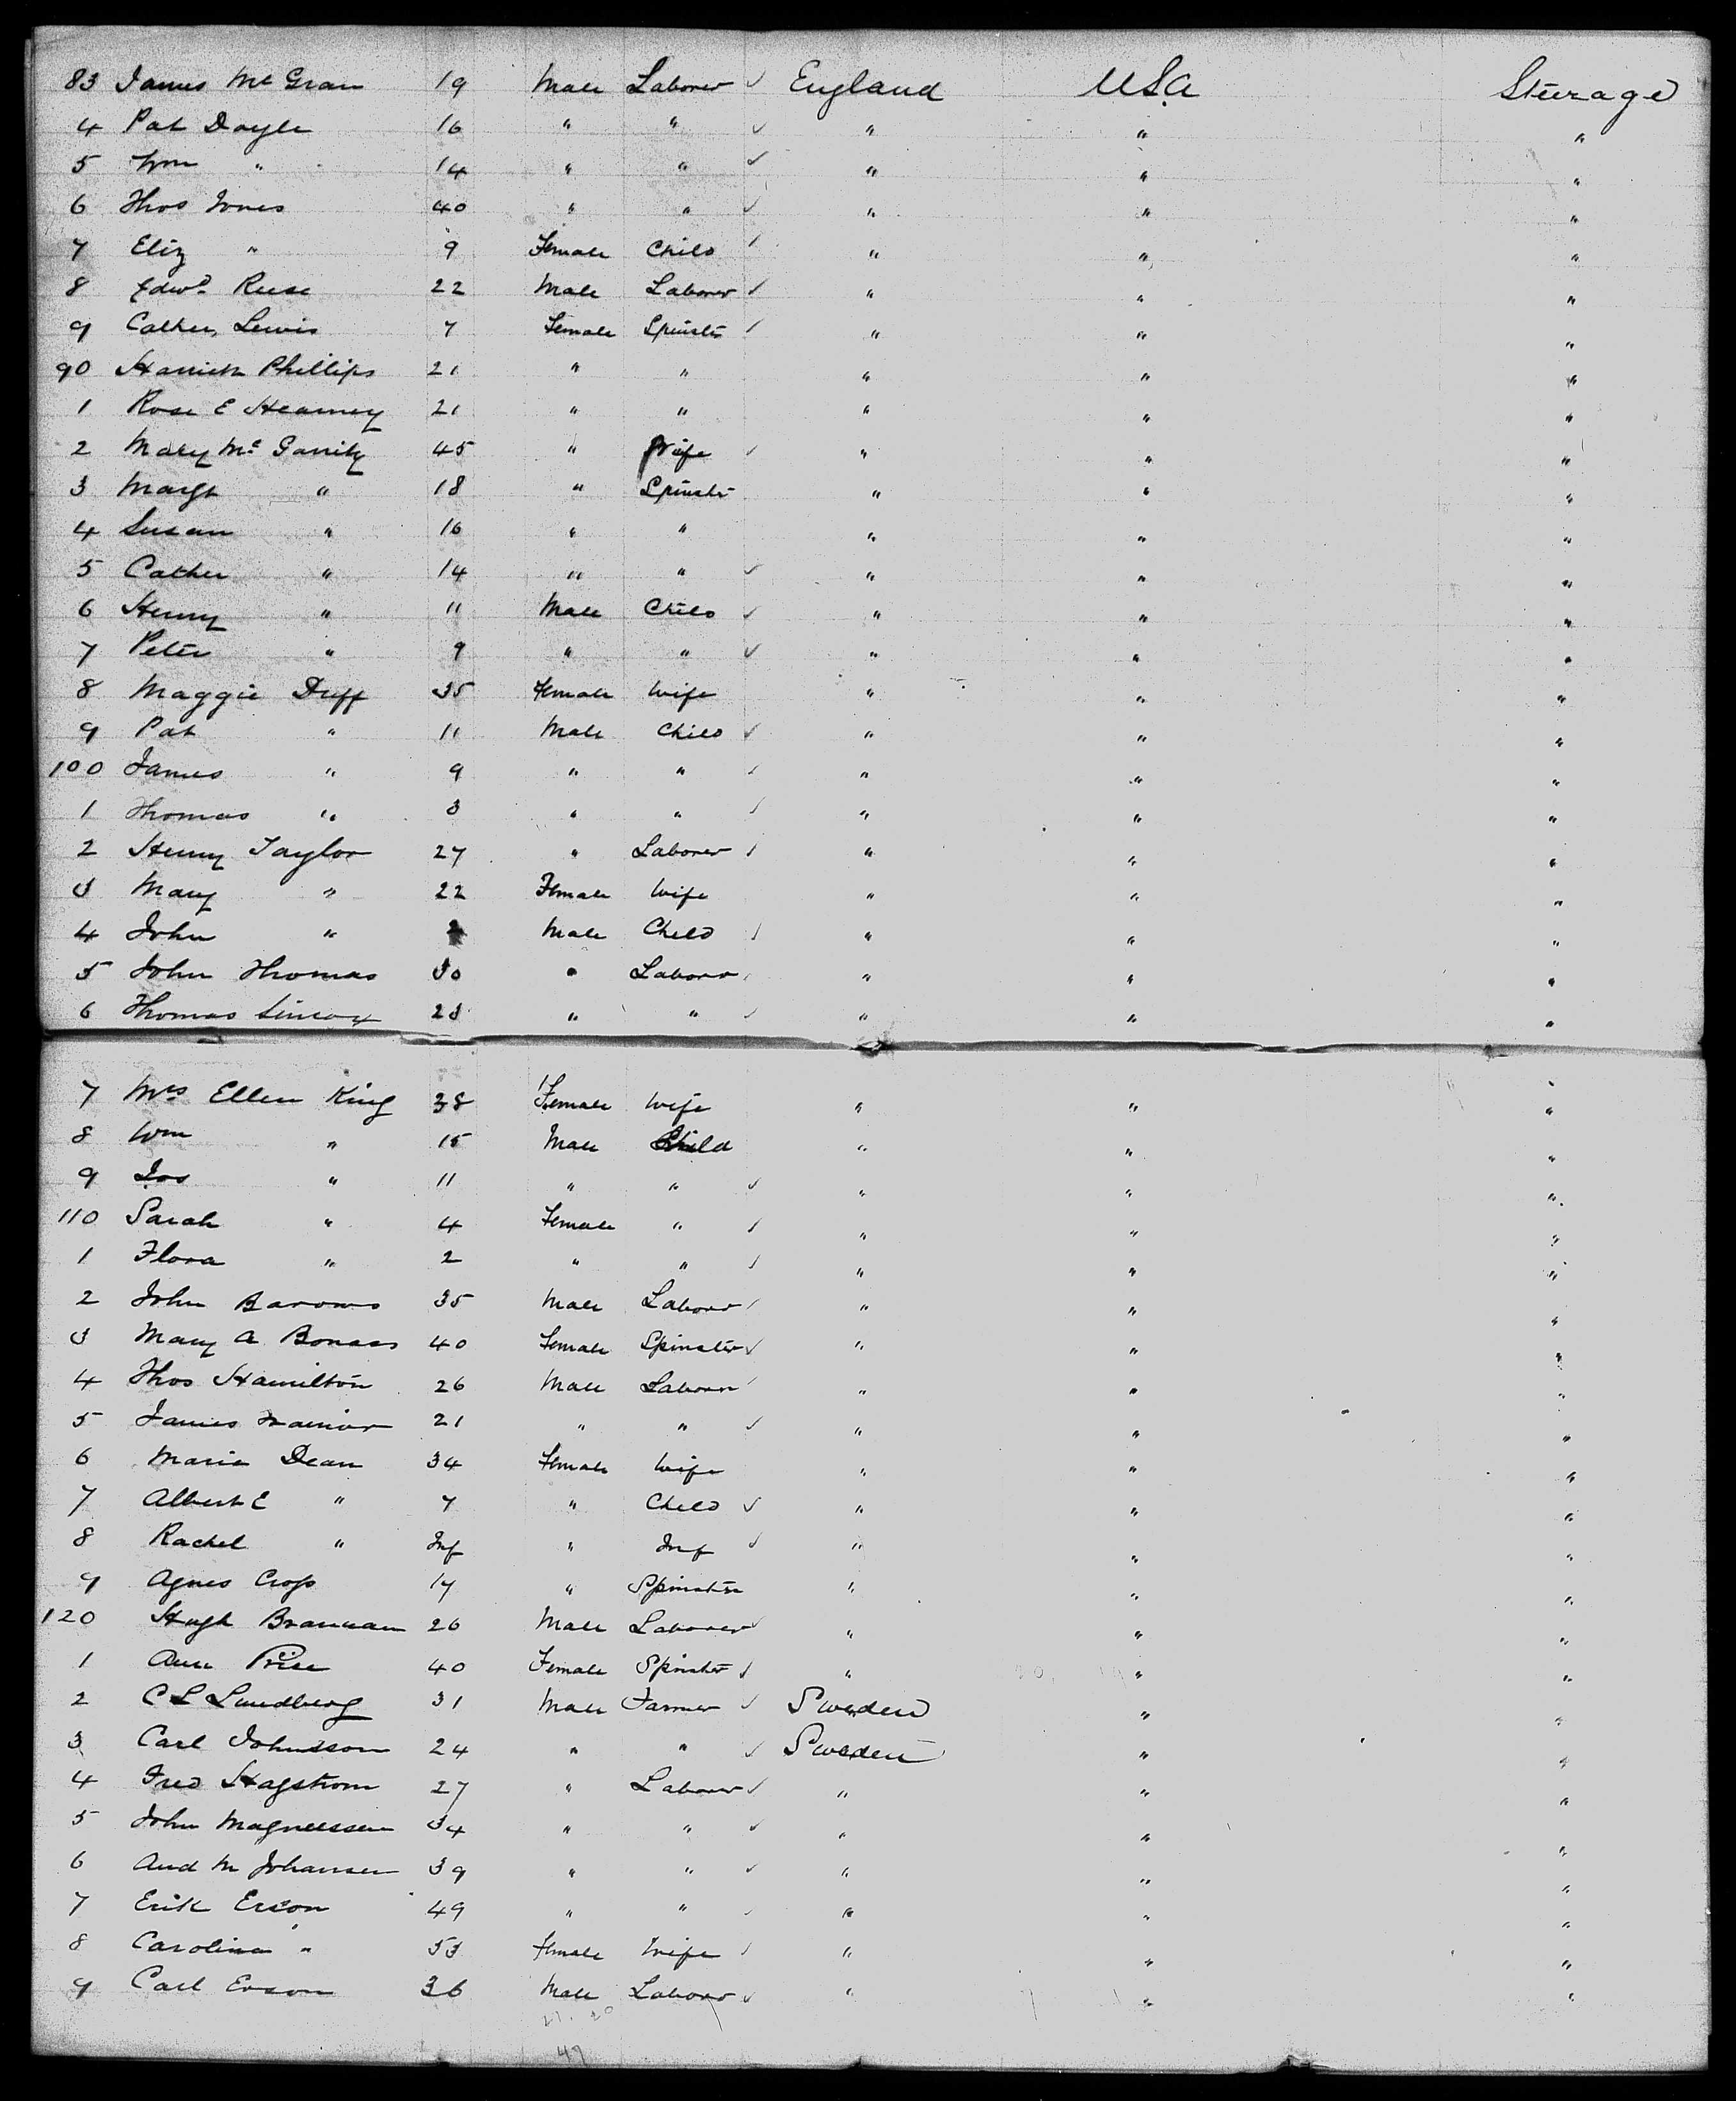 83 James Mc Gran 19 Male Laborer ✓ England USA Steerage
4 Pat Doyle 16 " " ✓ " " "
5 Wm " 14 " " ✓ " " "
6 Thos Jones 40 " " ✓ " " "
7 Eliz " 9 Female Child ✓ " " "
8 Edwd Reese 22 Male Laborer ✓ " " "
9 Cather Lewis 7 Female Spinster ✓ " " "
90 Phillips 21 " " " " "
1 Rose E Hearney 21 " " " " "
2 Mary Mc Garrity 45 " Wife ✓ " " "
3 Margt " 18 " Spinster " " "
4 Susan " 16 " " " " "
5 Cather " 14 " " ✓ " " "
6 Henry " 11 Male Child ✓ " " "
7 Peter " 9 " " ✓ " " "
8 Maggie Duff 35 Female Wife " " "
9 Pat " 11 Male Child ✓ " " "
100 James " 9 " " ✓ " " "
1 Thomas " 3 " " ✓ " " "
2 Henry Taylor 27 " Laborer ✓ " " "
3 Mary " 22 Female Wife " " "
4 John " 2 Male Child ✓ " " "
5 John Thomas 30 " Laborer ✓ " " "
6 Thomas 23 " " ✓ " " "
7 Mrs Ellen King 38 Female Wife " " "
8 Wm " 15 Male Child " " "
9 Jos " 11 " " ✓ " " "
110 Sarah " 4 Female " ✓ " " "
1 Flora " 2 " " ✓ " " "
2 John Barows 35 Male Laborer ✓ " " "
3 Mary A Bonass 40 Female Spinster ✓ " " "
4 Thos Hamilton 26 Male Laborer ✓ " " "
5 James 21 " " ✓ " " "
6 Maria Dean 34 Female Wife " " "
7 Albert E " 7 " Child ✓ " " "
8 Rachel " Inf " Inf ✓ " " "
9 Agnes Cross 17 " Spinster " " "
120 Hugh Brannan 26 Male Laborer ✓ " " "
1 Ann Price 40 Female Spinster ✓ " " "
2 C L Lundberg 31 Male Farmer ✓ Sweden " "
3 Carl Johnsson 24 " " ✓ Sweden " "
4 Fred Hagstrom 27 " Laborer ✓ " " "
5 John Magneessen 34 " " ✓ " " "
6 And M Johansen 39 " " ✓ " " "
7 Erik Ericon 49 " " ✓ " " "
8 Carolina " 53 Female Wife ✓ " " "
9 Carl Erson 36 Male Laborer ✓ " " "
49